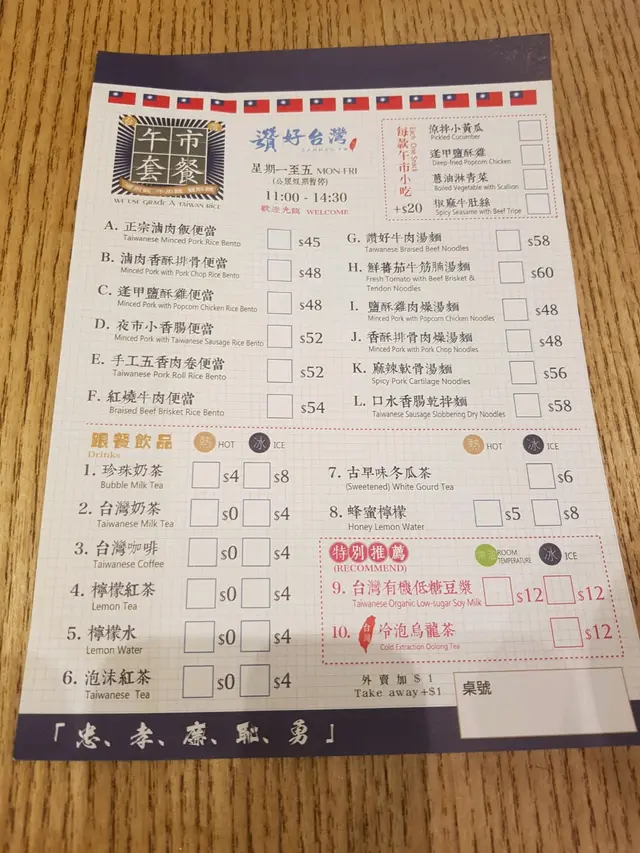 午市
套餐
WE USE GRADE A TAIWAN RICE
讚好台灣
星期一至五 MON-FRI
(公眾假期暫停)
11:00 - 14:30
歡迎光臨 WELCOME
每款午市小吃
Each One Snack
+$20
涼拌小黃瓜
Pickled Cucumber
逢甲鹽酥雞
Deep-fried Popcorn Chicken
蔥油淋青菜
Boiled Vegetable with Scallion
椒麻牛肚絲
Spicy Seasame with Beef Tripe
A. 正宗滷肉飯便當 $45
Taiwanese Minced Pork Rice Bento
B. 滷肉香酥排骨便當 $48
Minced Pork with Pork Chop Rice Bento
C. 逢甲鹽酥雞便當 $48
Minced Pork with Popcorn Chicken Rice Bento
D. 夜市小香腸便當 $52
Minced Pork with Taiwanese Sausage Rice Bento
E. 手工五香肉卷便當 $52
Taiwanese Pork Roll Rice Bento
F. 紅燒牛肉便當 $54
Braised Beef Brisket Rice Bento
G. 讚好牛肉湯麵 $58
Taiwanese Braised Beef Noodles
H. 鮮蕃茄牛筋腩湯麵 $60
Fresh Tomato with Beef Brisket &
Tendon Noodles
I. 鹽酥雞肉燥湯麵 $48
Minced Pork with Popcorn Chicken Noodles
J. 香酥排骨肉燥湯麵 $48
Minced Pork with Pork Chop Noodles
K. 麻辣軟骨湯麵 $56
Spicy Pork Cartilage Noodles
L. 口水香腸乾拌麵 $58
Taiwanese Sausage Slobbering Dry Noodles
跟餐飲品 熱 HOT 冰 ICE
Drinks
1. 珍珠奶茶 $4 $8
Bubble Milk Tea
2. 台灣奶茶 $0 $4
Taiwanese Milk Tea
3. 台灣咖啡 $0 $4
Taiwanese Coffee
4. 檸檬紅茶 $0 $4
Lemon Tea
5. 檸檬水 $0 $4
Lemon Water
6. 泡沫紅茶 $0 $4
Taiwanese Tea
熱 HOT 冰 ICE
7. 古早味冬瓜茶 $6
(Sweetened) White Gourd Tea
8. 蜂蜜檸檬 $5 $8
Honey Lemon Water
特別推薦
(RECOMMEND)
ROOM
TEMPERATURE
冰 ICE
9. 台灣有機低糖豆漿 $12 $12
Taiwanese Organic Low-sugar Soy Milk
10. 台灣 冷泡烏龍茶 $12
Cold Extraction Oolong Tea
外賣加 $1
Take away +$1
桌號
「忠、孝、廉、恥、勇」